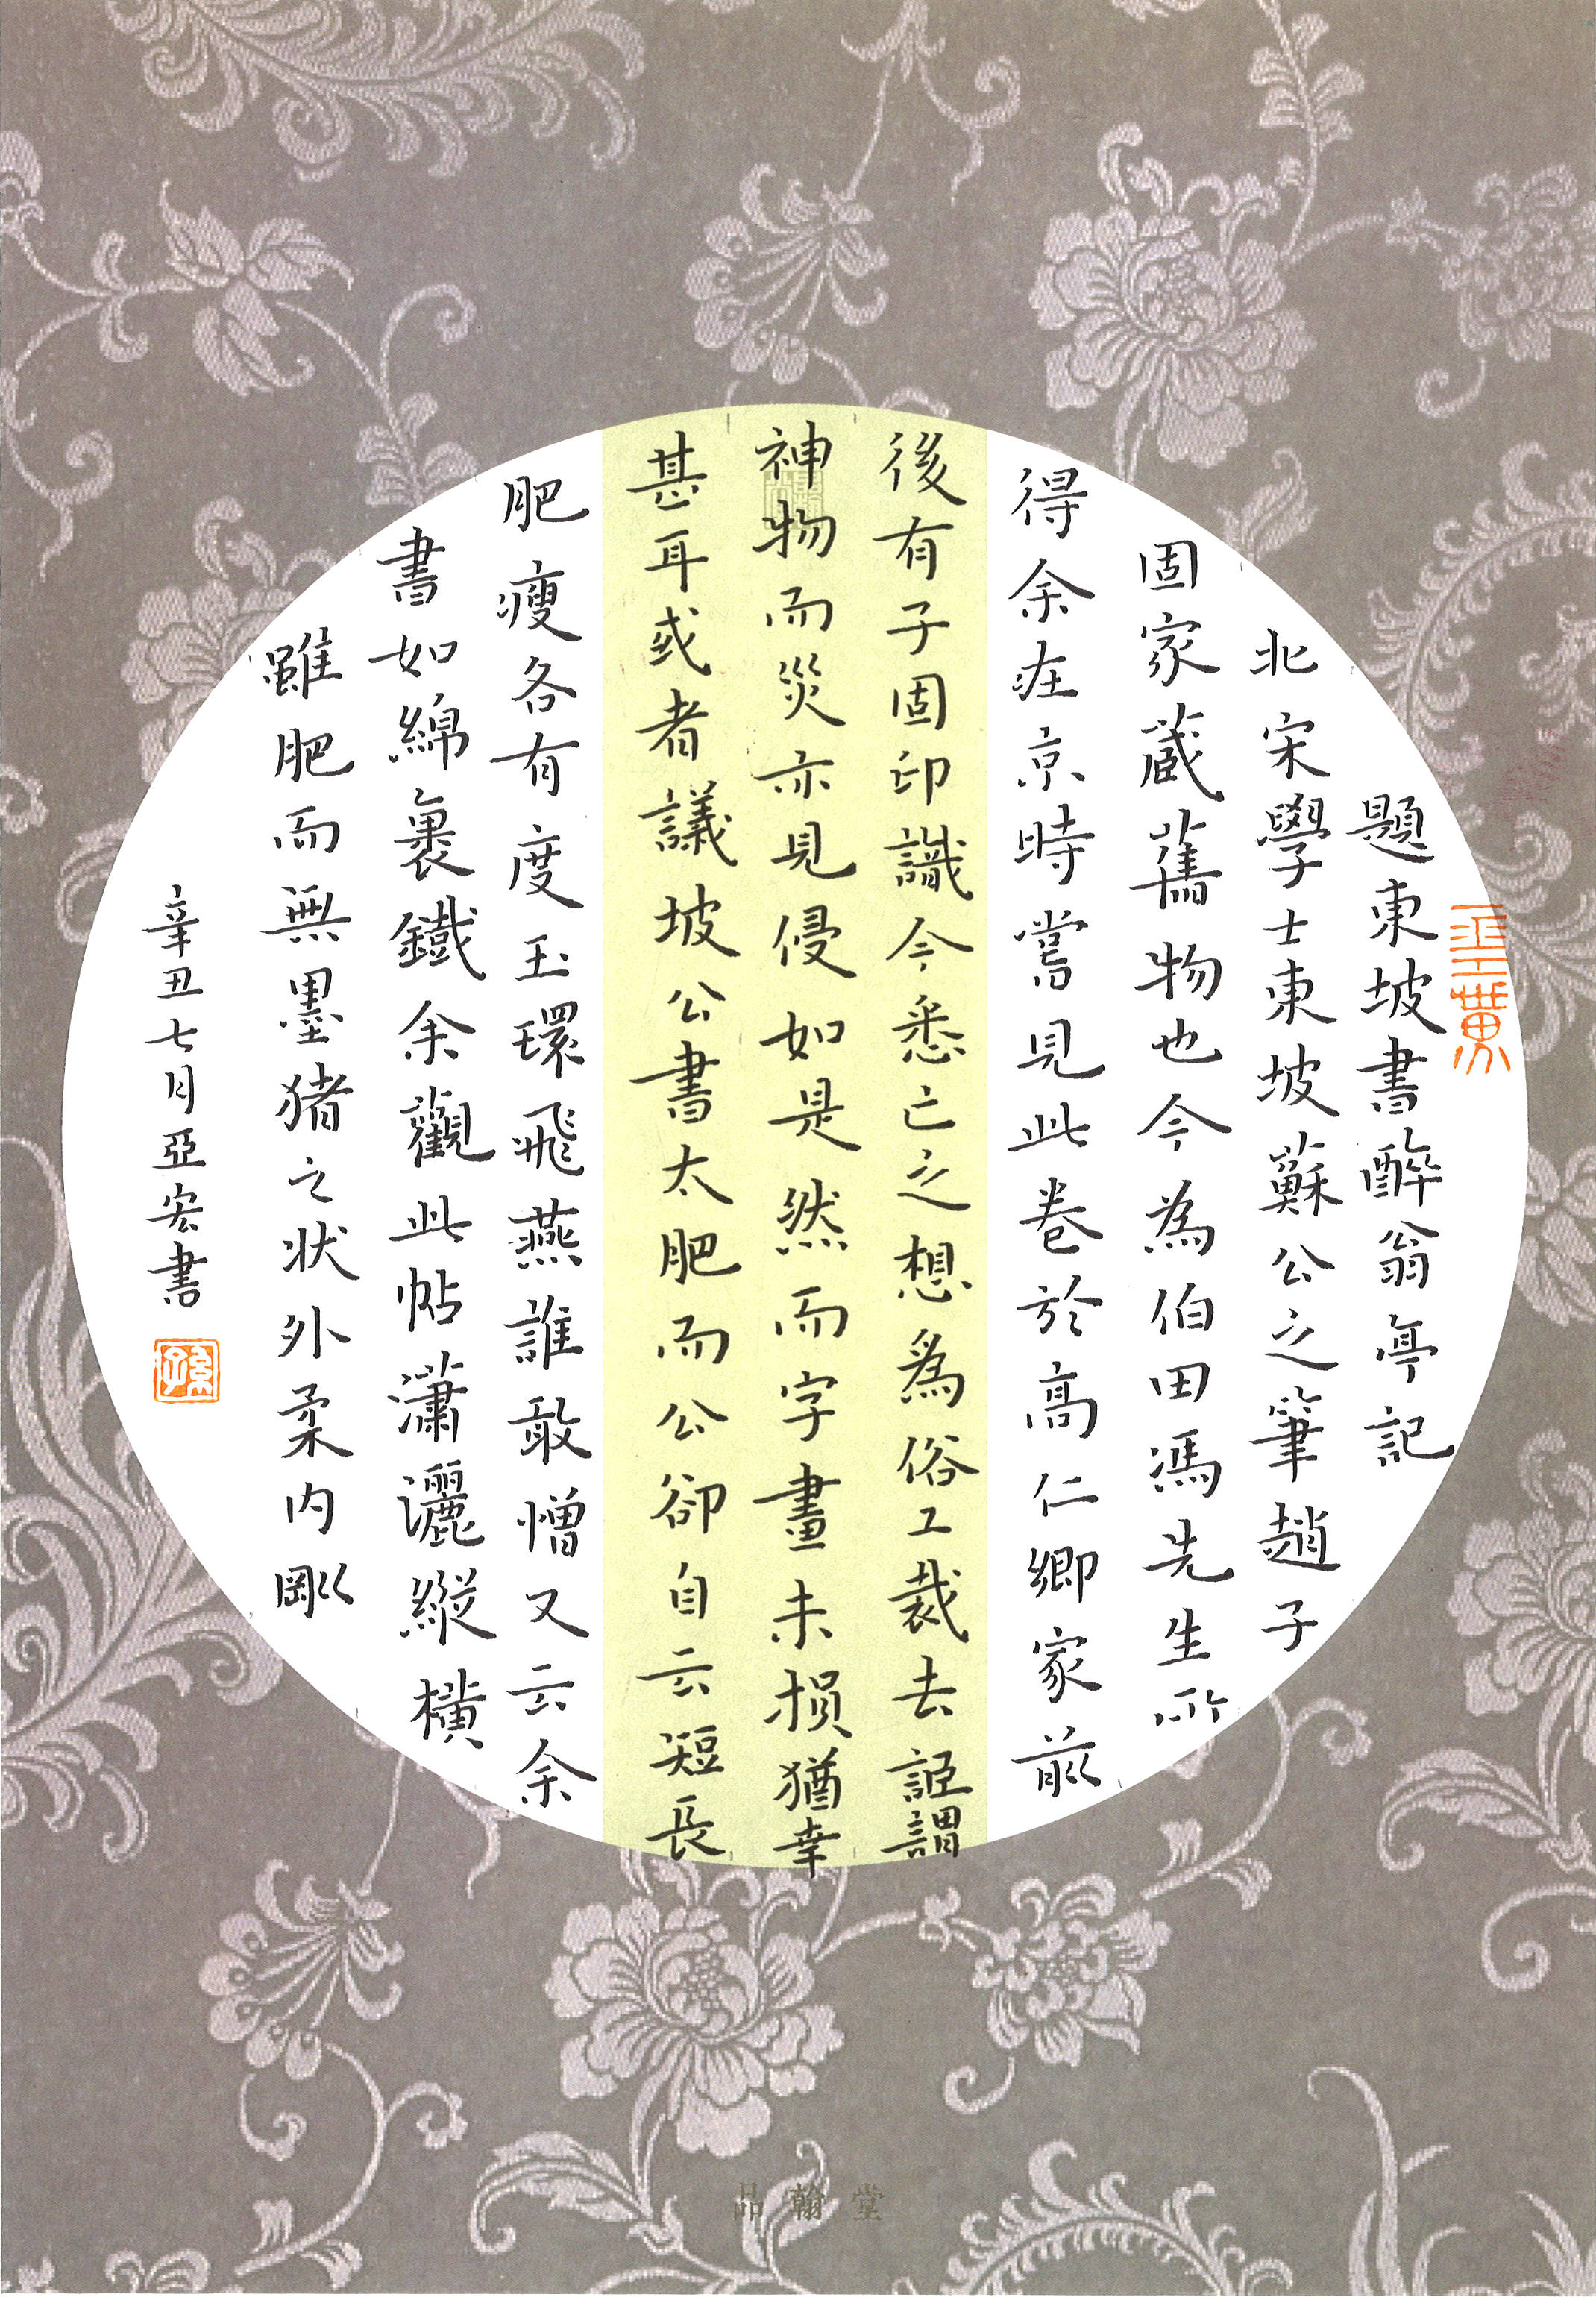 題東坡書醉翁亭記
北宋學士東坡蘇公之筆趙子
固家藏舊物也今為伯田馮先生所
得余在京時嘗見此卷於高仁卿家前
後有子固印識今悉亡之想為俗工裁去詎謂
神物而災亦見侵如是然而字畫未損猶幸
甚耳或者議坡公書太肥而公卻自云短長
肥瘦各有度玉環飛燕誰敢憎又云余
書如綿裹鐵余觀此帖瀟灑縱橫
雖肥而無墨猪之状外柔内剛
辛丑七月亞宏書
品翰堂